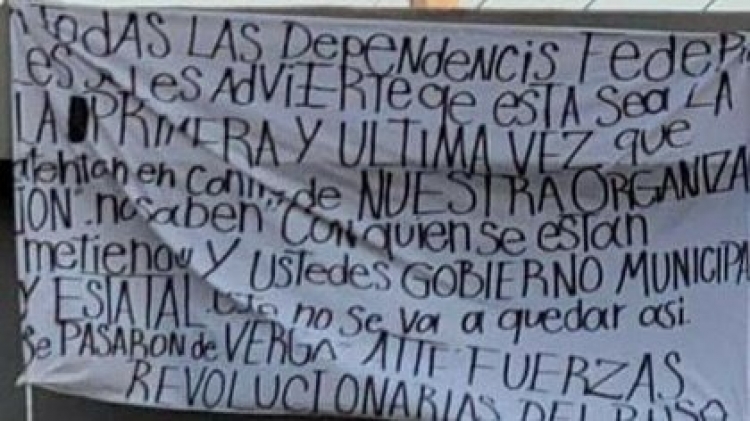 TODAS LAS DEPENDENCIS FEDERA
ES SE LES ADVIERTE qe ESTA Sea LA
LA PRIMERA Y ULTIMA VEZ que
atentan en contra de NUESTRA ORGANIZA
ION". no saben "Con quien se estan
metieno Y USTEDES GOBIERNO MUNICIPA
Y ESTATAL. esto no se va a quedar asi.
Se PASARON de VERGA" ATTE FUERZAS
REVOLUCIONARIAS DEL RUSO